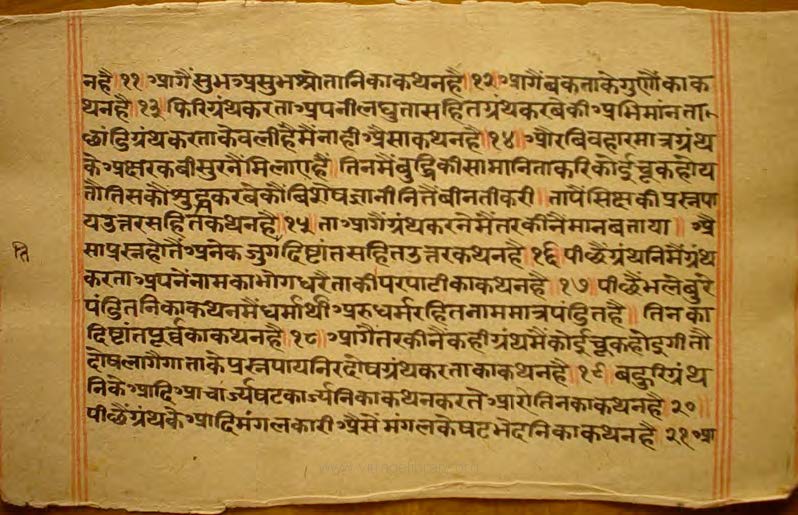 नहै ११ आगैं सुभअसुभश्रोतानिकाकथनहै १२ आगैं बकताकेगुणौंकाक
थनहै १३ फिरिग्रंथकरताअपनीलघुतासहितग्रंथकरबेकीअभिमांनता
छांडिग्रंथकरताकेवलीहैमैंनाहीअैसाकथनहै १४ औरबिवहारमात्रग्रंथ
केअक्षरकबीसुरनैंमिलाएहैं तिनमैंबुद्धिकीसामानिताकरिकोईचूकहोय
तौतिसकौंशुद्धकरबेकौंबिशेषज्ञानीनितैंबीनतीकरी तापैंसिक्षकीप्रस्नपा
यउत्तरसहितकथनहै १५ ताआगैंग्रंथकरनेमैंतरकीनैंमानबताया ॥ अै
साप्रस्नहोतैंअनेकजुगदिष्टांतसहितउत्तरकथनहै १६ पीछैंग्रंथनिमैंग्रंथ
करताअपनेंनामकाभोगधरैताकीपरपाटीकाकथनहै १७ पीछैंभलेबुरे
पंडितनिकाकथनमैंधर्मार्थीअरुधर्मरहितनाममात्रपंडितहै तिनका
दिष्टांतपूर्वककाकथनहै १८ आगैंतरकीनैंकहीग्रंथमैंकोईचूकहोइगीतौ
दोषलागैगाताकेप्रस्नपायनिरदोषग्रंथकरताकाकथनहै १९ बहुरिग्रंथ
निकेआदिआचार्ज्यषटकार्ज्यनिकाकथनकरतेआएतिनकाकथनहै २०॥
पीछैंग्रंथकेआदिमंगलकारीअैसेंमंगलकेषटभेदनिकाकथनहै २१ आ